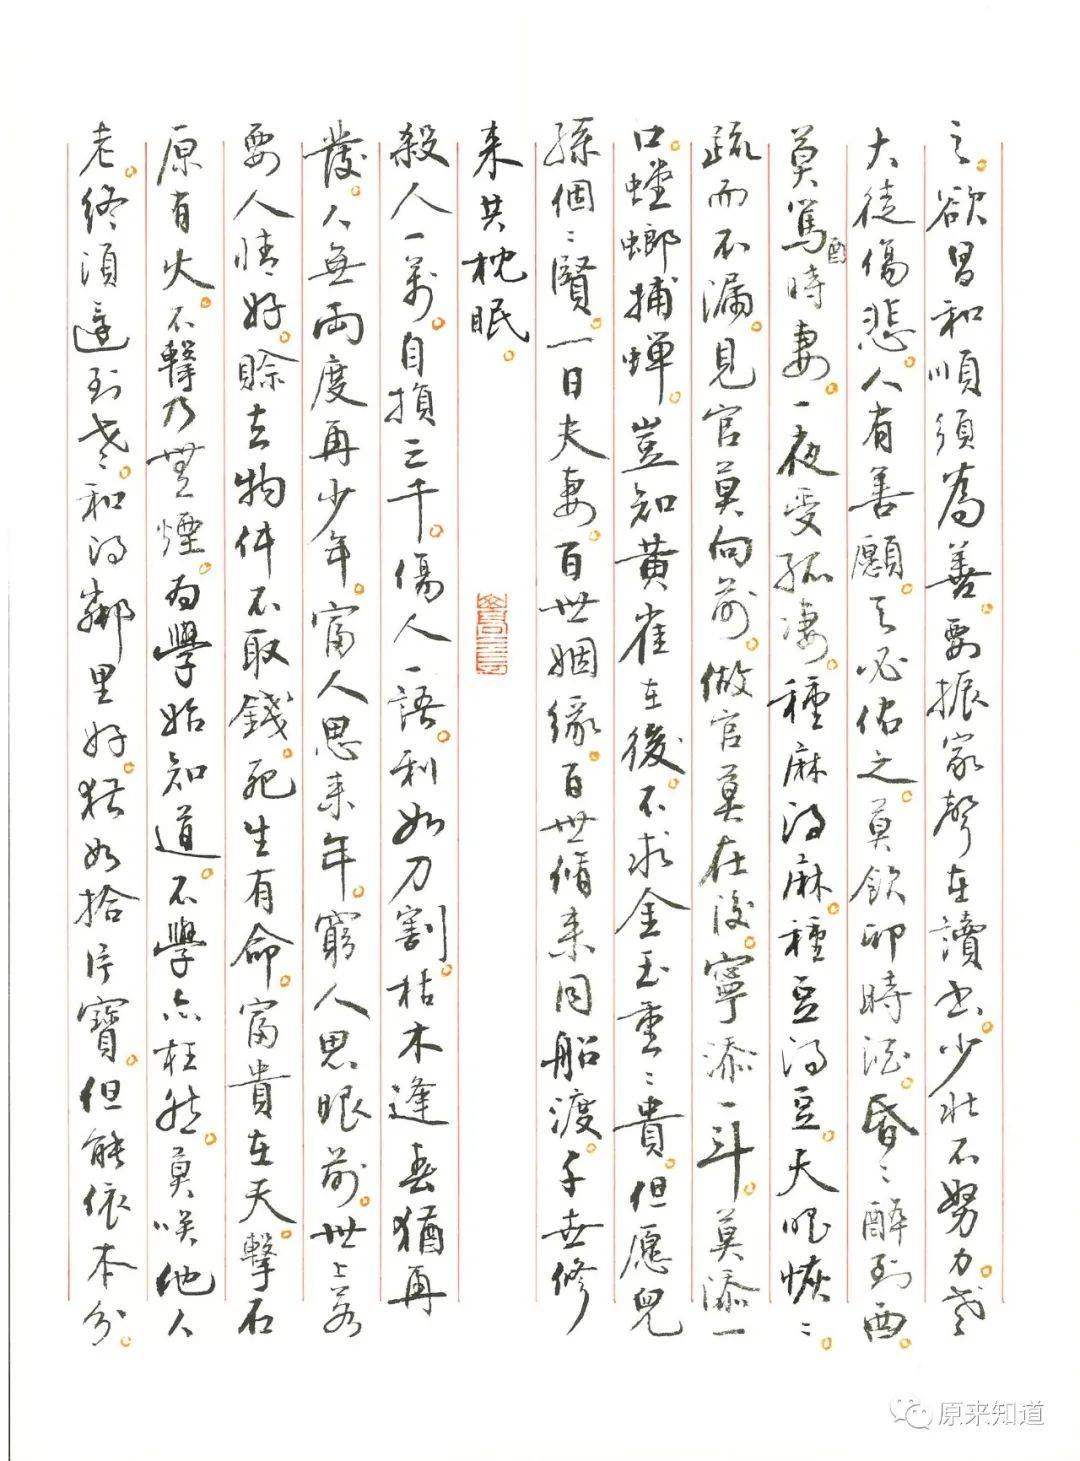 之。欲昌和順須為善。要振家聲在讀書。少壯不努力。老
大徒傷悲。人有善願。天必佑之。莫飲卯時酒。昏〻醉到酉。
莫罵酉時妻。一夜受孤凄。種麻得麻。種豆得豆。天眼恢〻
疏而不漏。見官莫向前。做官莫在後。寧添一斗。莫添一
口。螳螂捕蟬。豈知黃雀在後。不求金玉重〻貴。但愿兒
孫個〻賢。一日夫妻。百世姻緣。百世修來同船渡。千世修
来共枕眠。
殺人一萬。自損三千。傷人一語。利如刀割。枯木逢春猶再
發。人無兩度再少年。富人思来年。窮人思眼前。世上若
要人情好。賒去物件不取錢。死生有命。富貴在天。擊石
原有火。不擊乃無煙。為學始知道。不學亦枉然。莫笑他人
老。終須還到老。和得鄰里好。猶如拾片寶。但能依本分。
原来知道